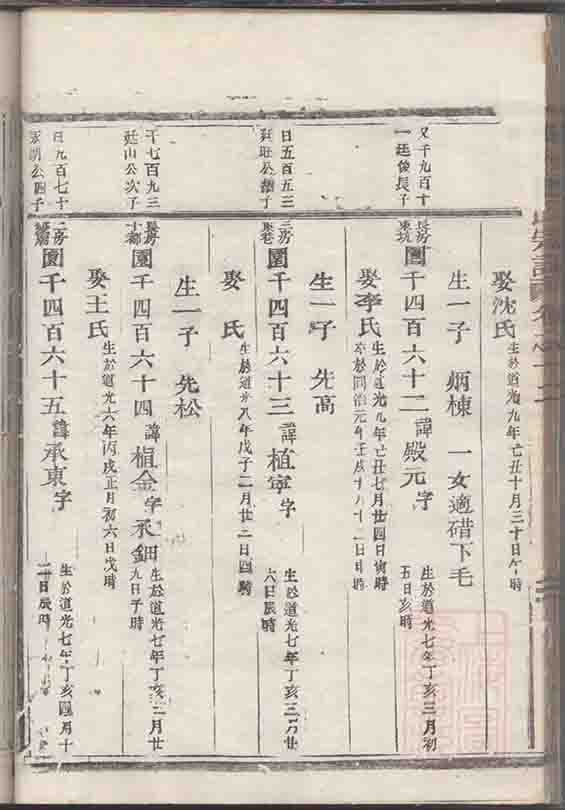 娶沈氏 生於道光九年己丑十月三十日午時
生一子 炳棟 一女適碏下毛
又千九百十
一廷俊長子
長房
東坑
圓千四百六十二 諱殿元 字 生於道光七年丁亥三月初
五日亥時
娶李氏 生於道光九年己丑七月廿四日寅時
卒於同治元年壬戌
生一子 先高
日五百五三
廷旺公
二房
圓千四百六十三 諱植寧 字 生於道光七年丁亥三月廿
六日辰時
娶 氏 生於道光八年戊子二月廿二日酉時
生一子 先松
千七百九三
廷山公次子
長房
十都
圓千四百六十四 諱植金 字承鈿 生於道光七年丁亥三月廿
九日子時
娶王氏 生於道光六年丙戌正月初六日戌時
日九百七十
公四子
二房
圓千四百六十五 諱承東 字 生於道光七年丁亥四月十
日辰時